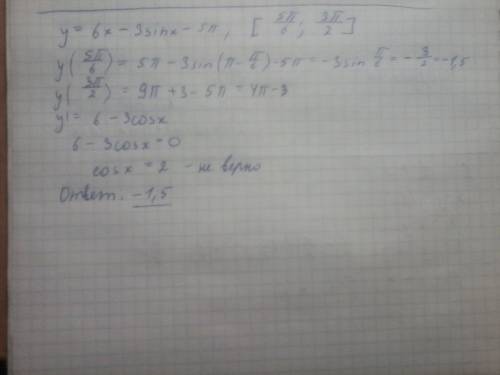 y = 6x - 3sinx - 5π, [ 5π/6 ; 3π/2 ]
y( 5π/6 ) = 5π - 3sin(π - π/6) - 5π = -3sin π/6 = - 3/2 = -1,5
y( 3π/2 ) = 9π + 3 - 5π = 4π - 3
y' = 6 - 3cosx
6 - 3cosx = 0
cosx = 2 - не верно
Ответ. -1,5